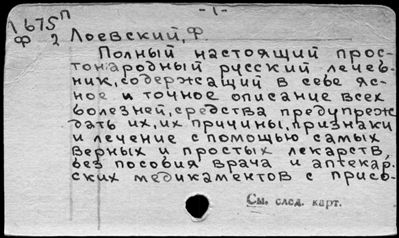 -1-
1675 п
Ф 2 Лоевский, Ф.
Полный настоящий прос-
тонародный русский лечеб-
ник, содержащий в себе яс-
ное и точное описание всех
болезней, средства предупреж-
дать их, их причины, признаки
и лечение с помощью самых
верных и простых лекарств,
без пособия врача и аптекар.
ских медикаментов с присо-
См. след. карт.